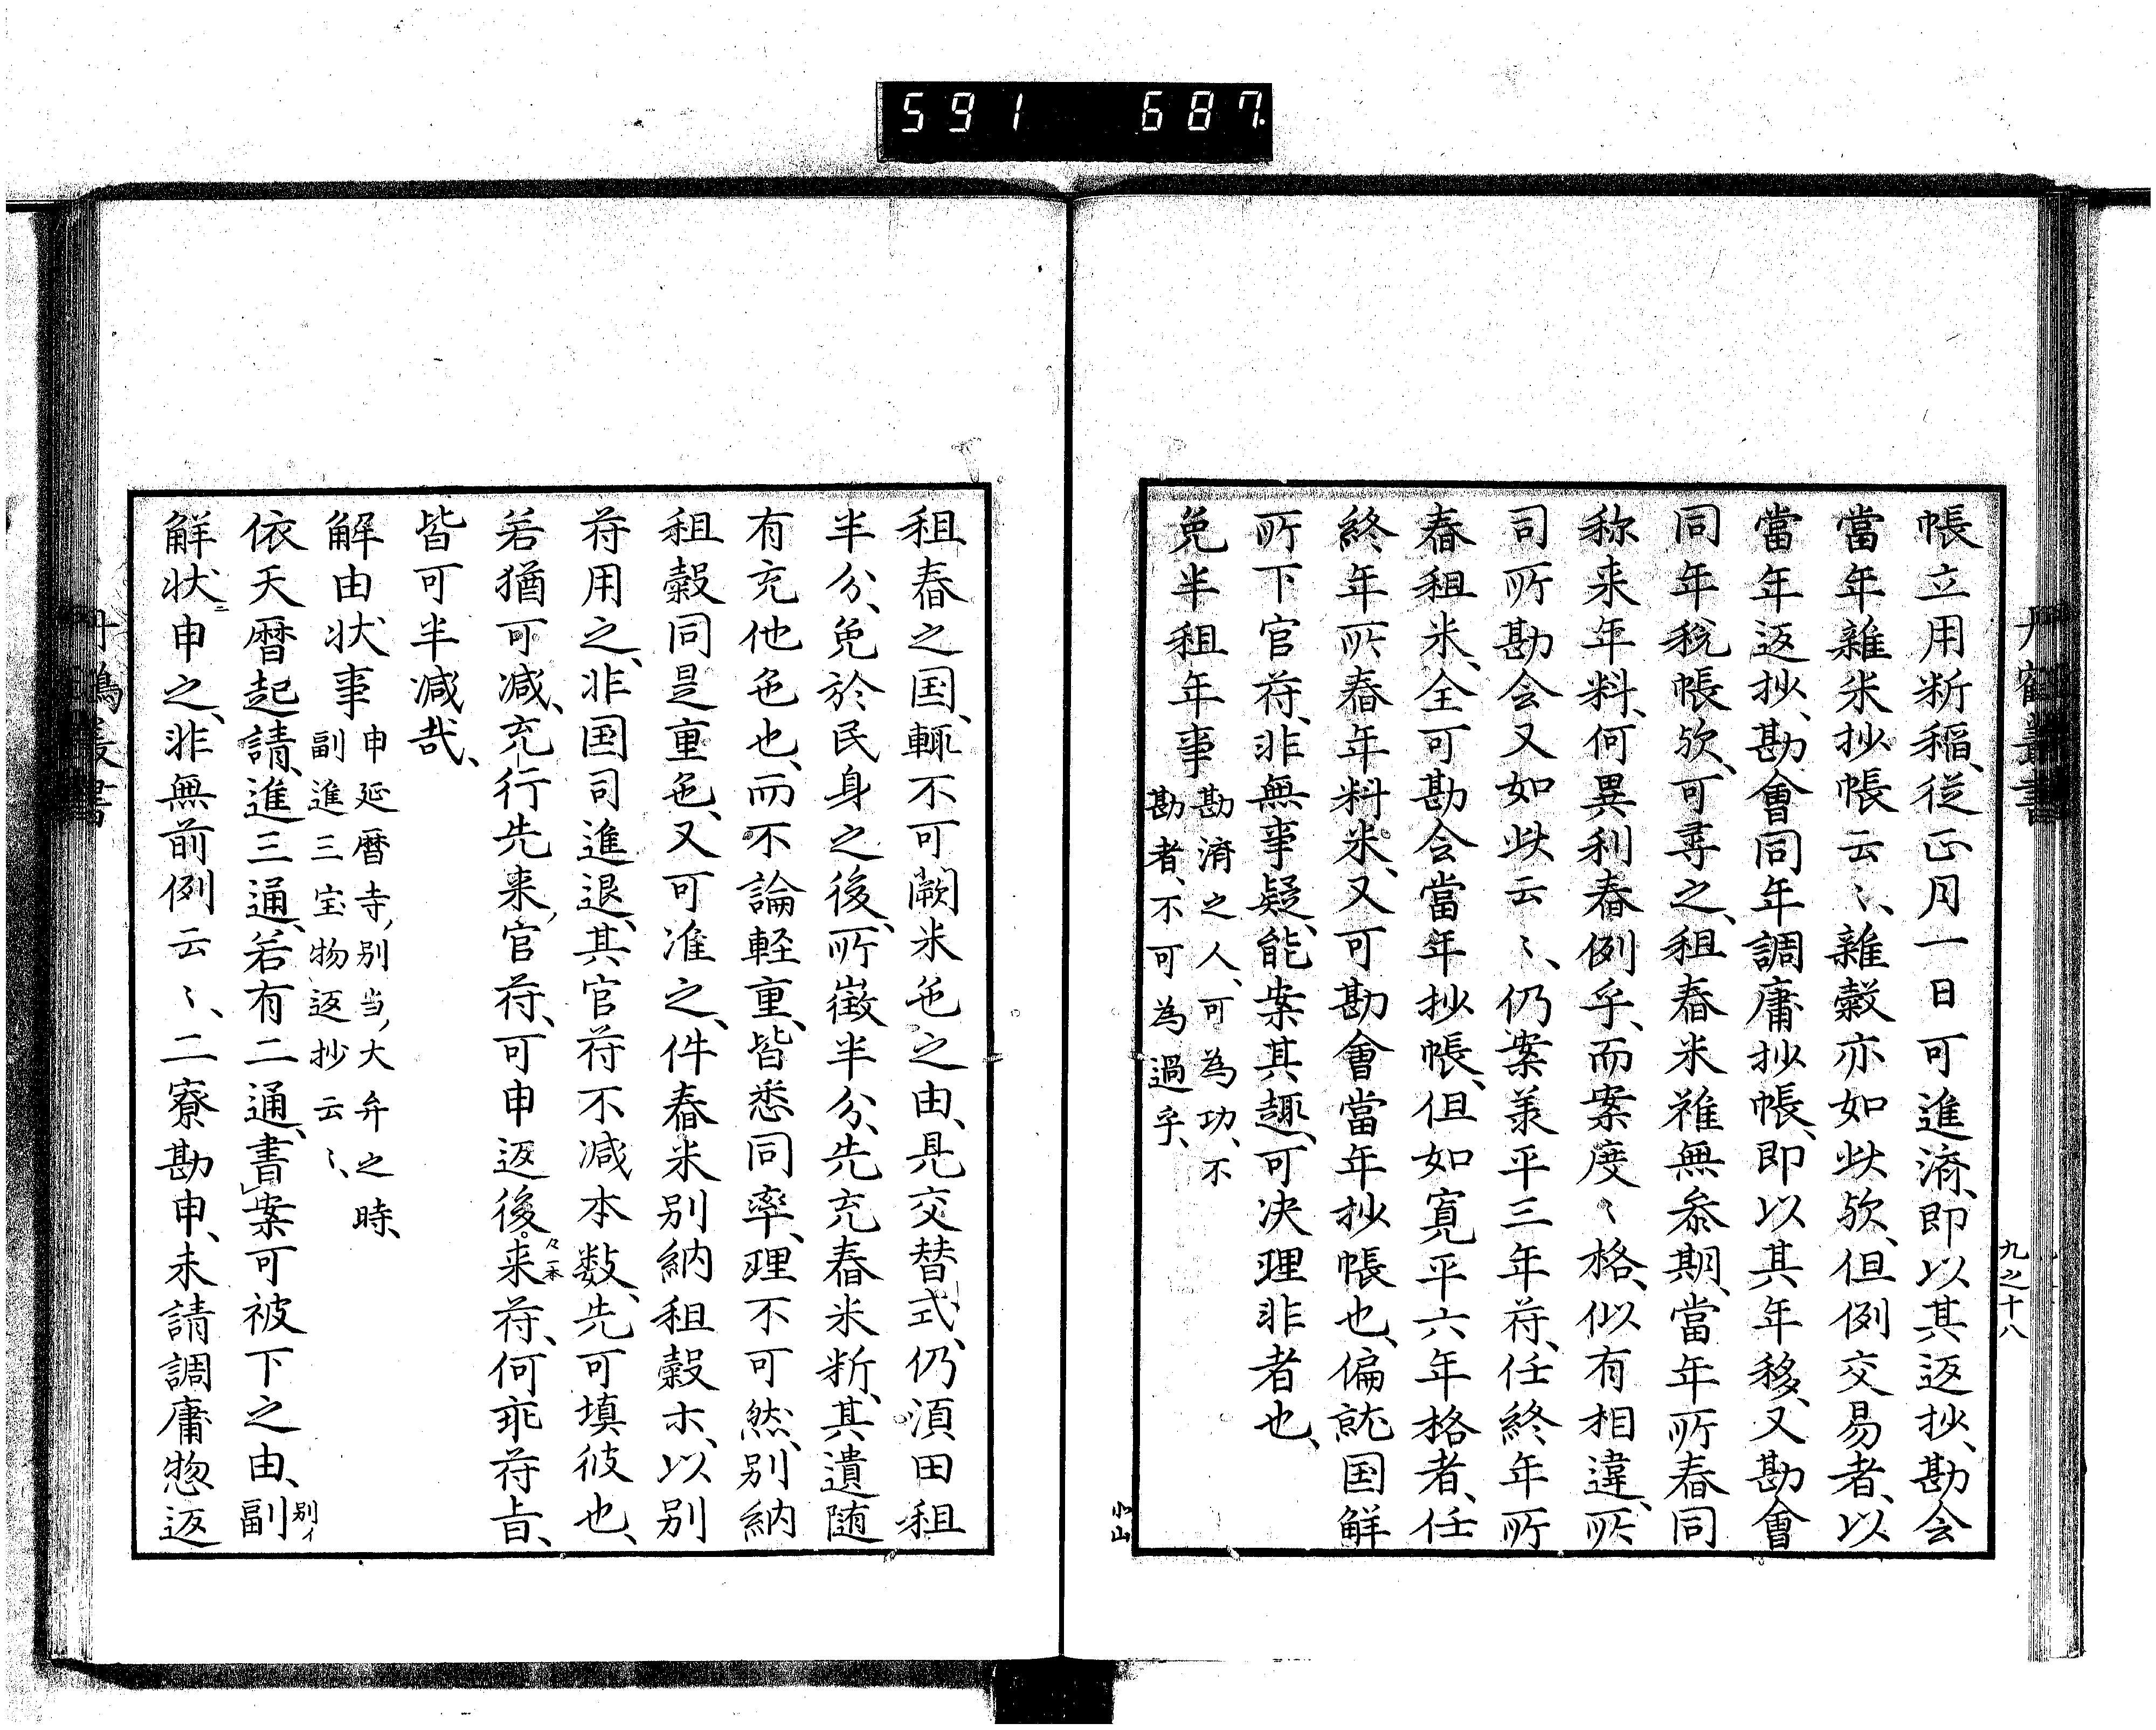 591 687.
丹鶴叢書
九之十八
帳立用断稲、従正月一日可進済、即以其返抄、勘会
當年雜米抄帳云〻、雜穀亦如此欤、但例交易者、以
當年返抄、勘會同年調庸抄帳、即以其年移、又勘會
同年税帳欤、可尋之、租舂米雖無叅期、當年所舂同
称来年料、何異利舂例乎、而案度〻格、似有相違、所
司所勘会又如此云〻、仍案承平三年符、任終年所
舂租米、全可勘会當年抄帳、但如寛平六年格者、任
終年所舂年料米、又可勘會當年抄帳也、偏就国解
所下官符、非無事疑、能案其趣、可决理非者也、
免半租年事
勘済之人、可為功、不
勘者、不可為過乎、
小山
租舂之国、輙不可闕米色之由、見交替式、仍湏田租
半分、免於民身之後、所徴半分、先充舂米断、其遺随
有充他色也、而不論軽重、皆悉同率、理不可然、别納
租穀同是重色、又可准之、件舂米别納租穀ホ、以别
符用之、非国司進退、其官符不減本数、先可填彼也、
若猶可減、充行先来官符、可申返後来符、何乖符旨、
々一本
皆可半減哉、
解由状事
申延暦寺别当大弁之時、
副進三宝物返抄云〻、
依天暦起請、進三通、若有二通、書案可被下之由、副
别イ
解状申之、非無前例云〻、二寮勘申、未請調庸惣返
丹鶴叢書